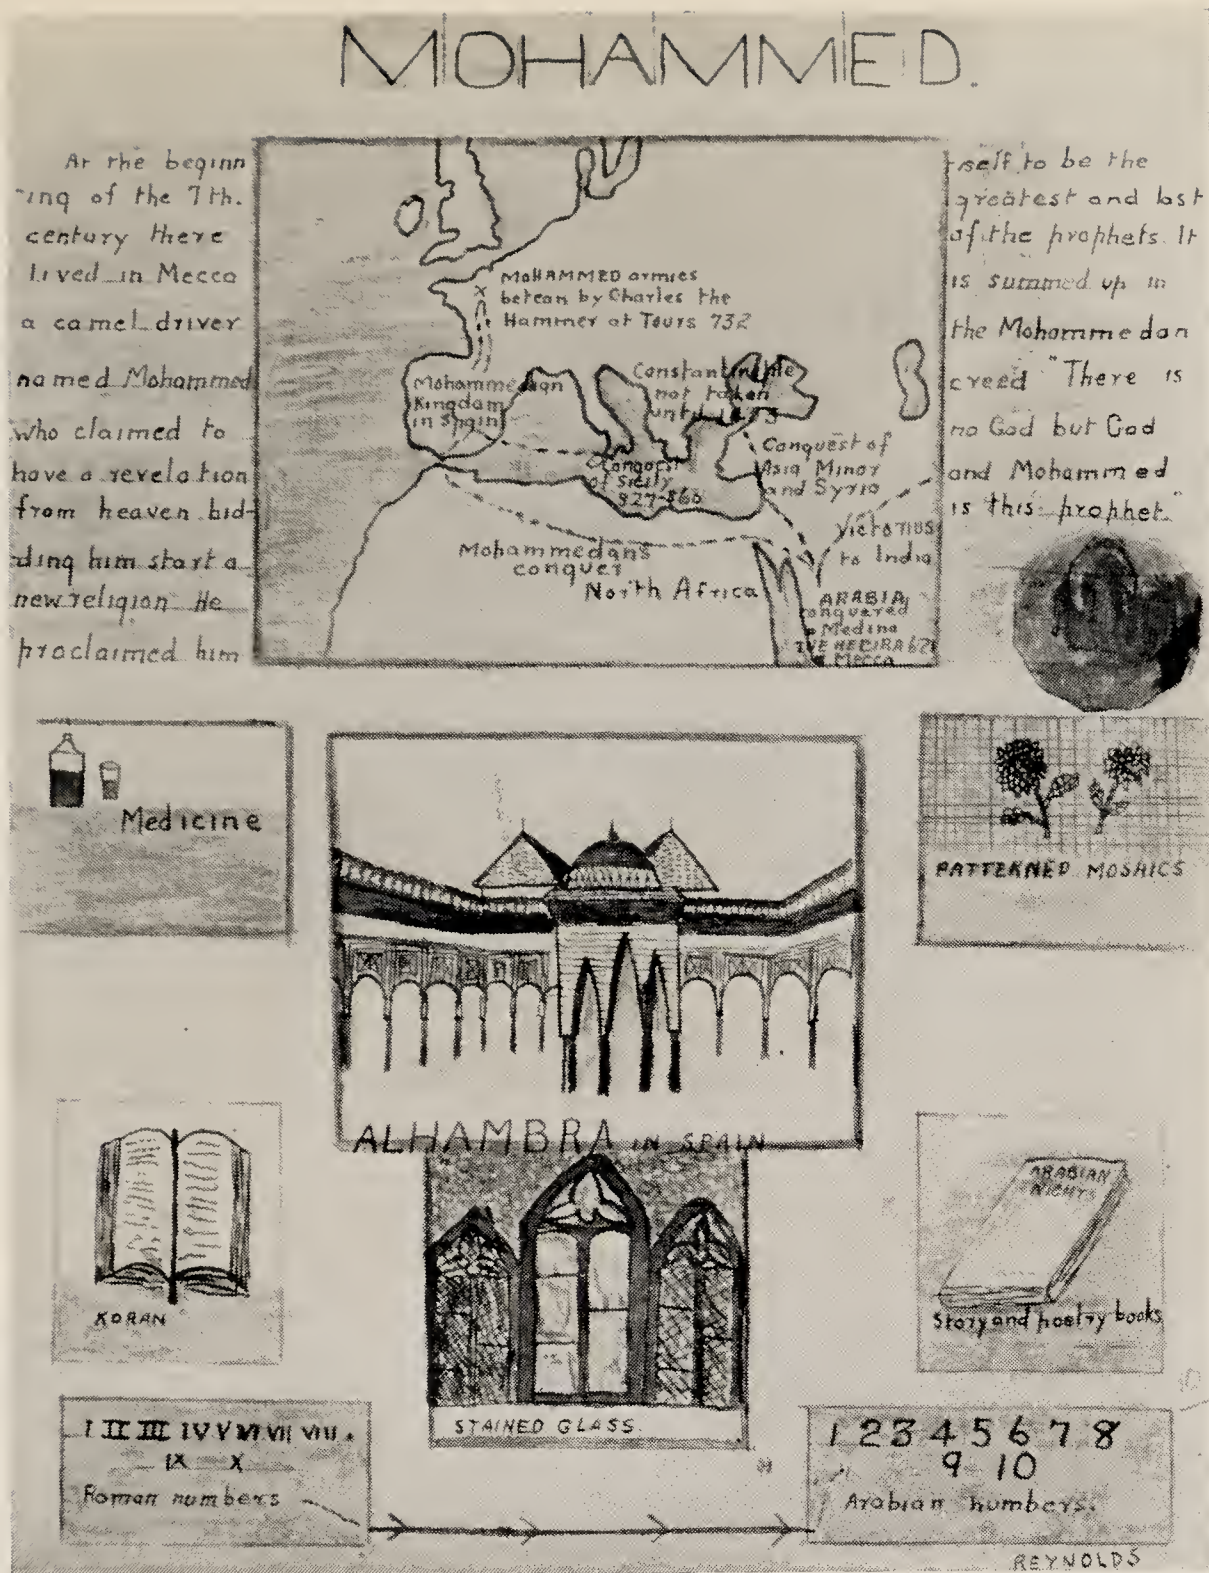 MOHAMMED.
At the beginn
-ing of the 7th.
century there
lived in Mecca
a camel driver
named Mohammed
who claimed to
have a revelation
from heaven bid-
ding him start a
new religion He
proclaimed him
-self to be the
greatest and last
of the prophets. It
is summed up in
the Mohammedan
creed "There is
no God but God
and Mohammed
is this prophet."
MOHAMMED armies
betean by Charles the
Hammer at Tours 732
Mohammedan
Kingdom
in Spain
Constantinople
not taken
until
Conquest
of Sicily
827-
Conquest of
Asia Minor
and Syria
Victorius
to India
Mohammedans
conquer
North Africa
ARABIA
conquered
Medina
THE HEGIRA
MECCA
Medicine
PATTERNED MOSAICS
ALHAMBRA IN SPAIN
KORAN
ARABIAN
NIGHTS
Story and poetry books
STAINED GLASS.
I II III IV V VI VII VIII.
IX X
Roman numbers
1 2 3 4 5 6 7 8
9 10
Arabian numbers.
REYNOLDS